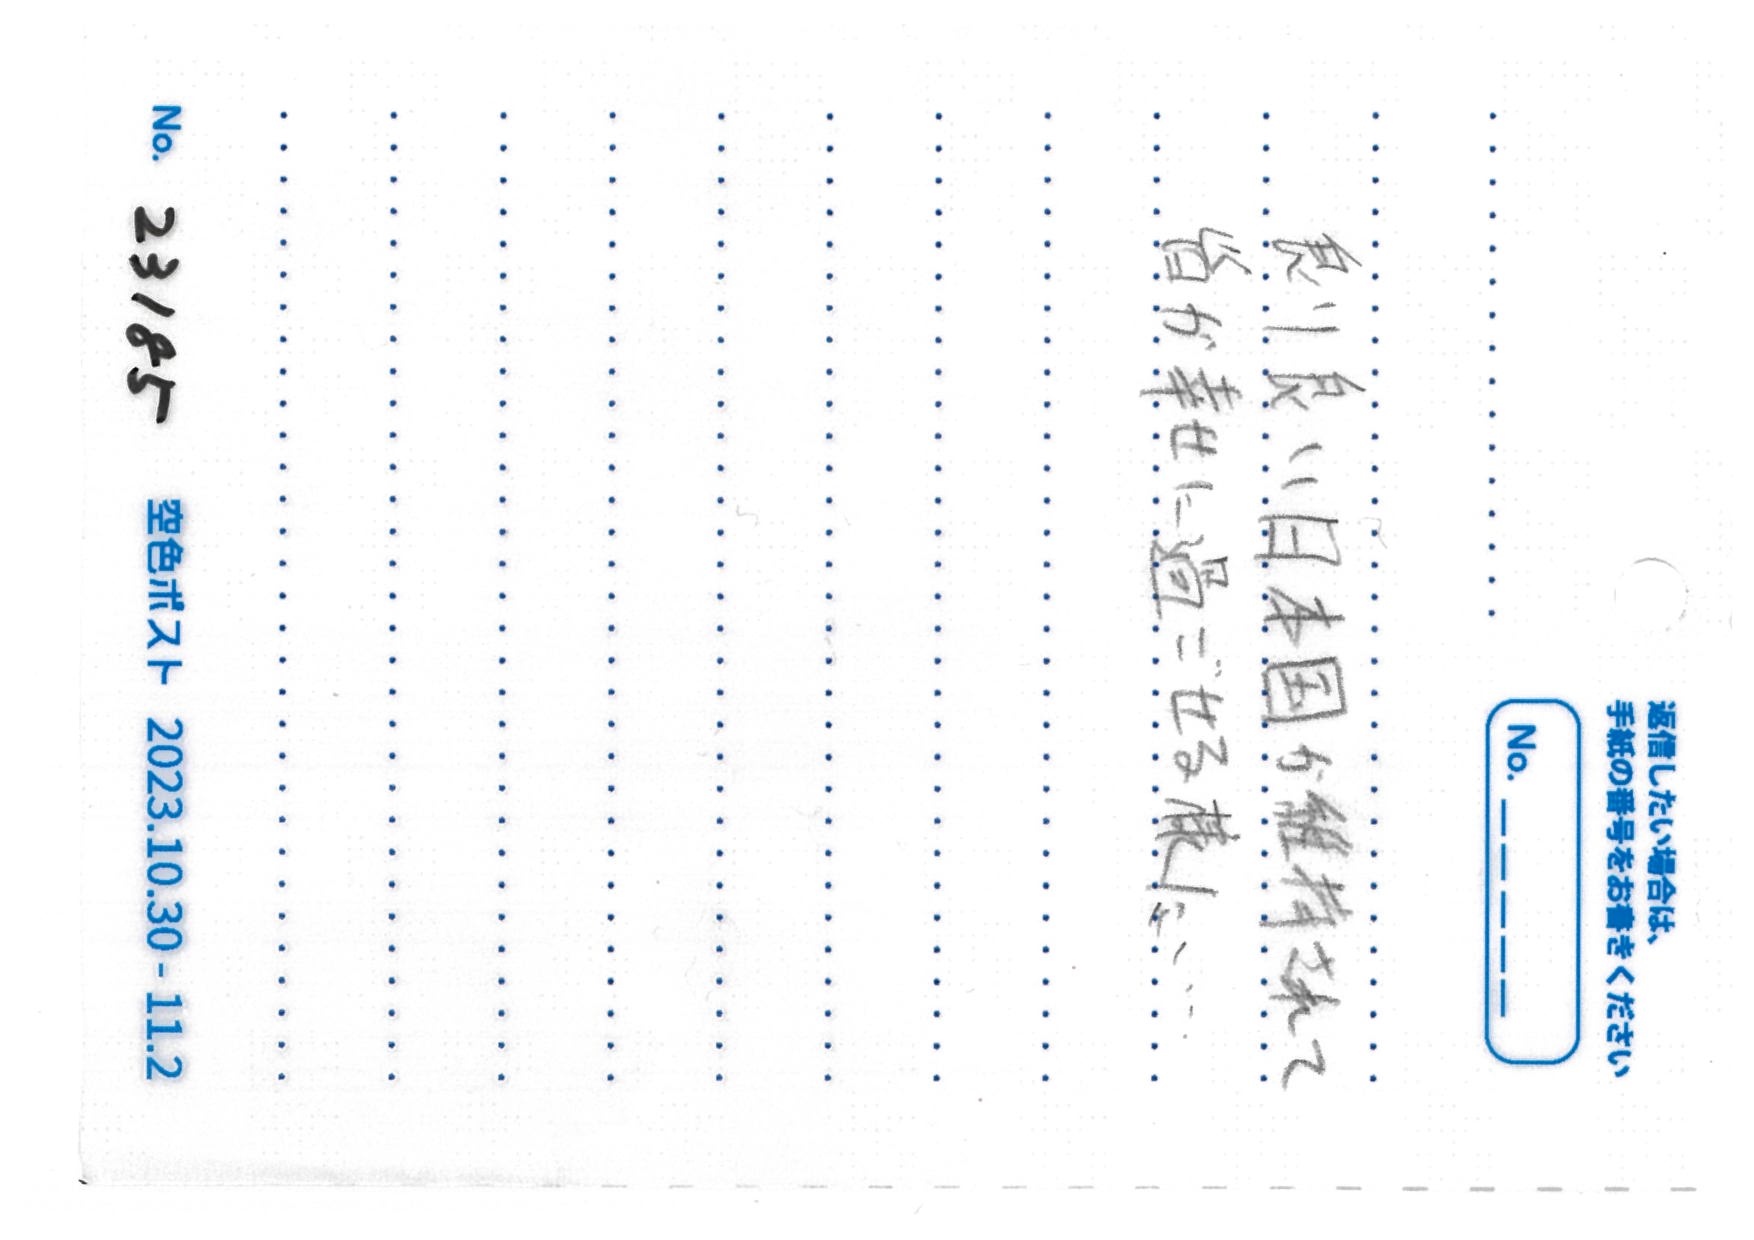 返信したい場合は、
手紙の番号をお書きください
No. _ _ _ _ _
良り良い日本国が維持されて
皆が幸せに過ごせる様に……
No. 23185
空色ポスト 2023.10.30 - 11.2